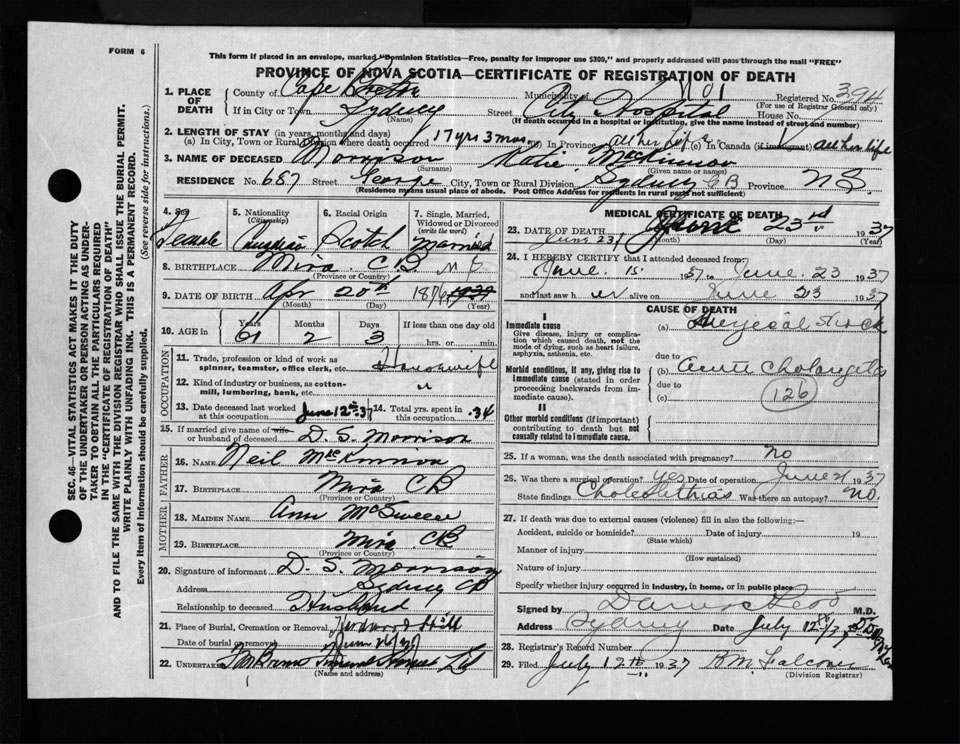 FORM 6
This form if placed in an envelope, marked "Dominion Statistics—Free, penalty for improper use $300," and properly addressed will pass through the mail "FREE"
PROVINCE OF NOVA SCOTIA—CERTIFICATE OF REGISTRATION OF DEATH
1. PLACE OF DEATH County of Cape Breton Municipality of No 1 Registered No. 394
(For use of Registrar General only)
If in City or Town Sydney Street City Hospital
(Name) (If death occurred in a hospital or institution, give the name instead of street and number)
2. LENGTH OF STAY (in years, months and days)
(a) In City, Town or Rural Division where death occurred 17 yrs 3 mos (b) In Province all her life (c) In Canada (if immigrant) all her life
3. NAME OF DECEASED Morrison Katie MacKinnon
(Surname) (Given name or names)
RESIDENCE No. 687 Street George City, Town or Rural Division Sydney CB Province N.S.
(Residence means usual place of abode. Post Office Address for residents in rural parts not sufficient)
4. Sex Female
5. Nationality (Citizenship) Canadian
6. Racial Origin Scotch
7. Single, Married, Widowed or Divorced (write the word) Married
8. BIRTHPLACE Mira C.B. N S
(Province or Country)
9. DATE OF BIRTH Apr 20th 1876
(Month) (Day) (Year)
10. AGE IN Years 61 Months 2 Days 3 If less than one day old
hrs. or min.
OCCUPATION
11. Trade, profession or kind of work as spinner, teamster, office clerk, etc. Housewife
12. Kind of industry or business, as cotton-mill, lumbering, bank, etc. "
13. Date deceased last worked at this occupation June 12th 37 14. Total yrs. spent in this occupation 34
15. If married give name of wife or husband of deceased D. S. Morrison
FATHER
16. NAME Neil McKinnon
17. BIRTHPLACE Mira CB
(Province or Country)
MOTHER
18. MAIDEN NAME Ann
19. BIRTHPLACE Mira CB
(Province or Country)
20. Signature of informant D. S. Morrison
Address Sydney CB
Relationship to deceased Husband
21. Place of Burial, Cremation or Removal Hill
Date of burial or removal
22. Undertaker
(Name and address)
MEDICAL CERTIFICATE OF DEATH
23. DATE OF DEATH June 23rd 1937
(Month) (Day) (Year)
June 23
24. I HEREBY CERTIFY that I attended deceased from:
June 15 1937 to June 23 1937
and last saw her alive on June 23 1937
CAUSE OF DEATH
I
Immediate cause
Give disease, injury or complication which caused death, not the mode of dying, such as heart failure, asphyxia, asthenia, etc.
(a) Surgical shock
due to
Morbid conditions, if any, giving rise to immediate cause (stated in order proceeding backwards from immediate cause).
(b) acute
due to
(c) 126
II
Other morbid conditions (if important) contributing to death but not causally related to immediate cause.
25. If a woman, was the death associated with pregnancy? no
26. Was there a surgical operation? yes Date of operation June 21 1937
State findings Was there an autopsy? no.
27. If death was due to external causes (violence) fill in also the following:—
Accident, suicide or homicide? Date of injury 19
(State which)
Manner of injury
(How sustained)
Nature of injury
Specify whether injury occurred in industry, in home, or in public place
Signed by M.D.
Address Sydney Date July 12th/37
28. Registrar's Record Number
29. Filed July 12th 1937 R.M. Falconer
(Division Registrar)
SEC. 46—VITAL STATISTICS ACT MAKES IT THE DUTY
OF THE UNDERTAKER OR PERSON ACTING AS UNDER-
TAKER TO OBTAIN ALL THE PARTICULARS REQUIRED
IN THE "CERTIFICATE OF REGISTRATION OF DEATH"
AND TO FILE THE SAME WITH THE DIVISION REGISTRAR WHO SHALL ISSUE THE BURIAL PERMIT.
WRITE PLAINLY WITH UNFADING INK. THIS IS A PERMANENT RECORD.
Every item of information should be carefully supplied. (See reverse side for instructions.)